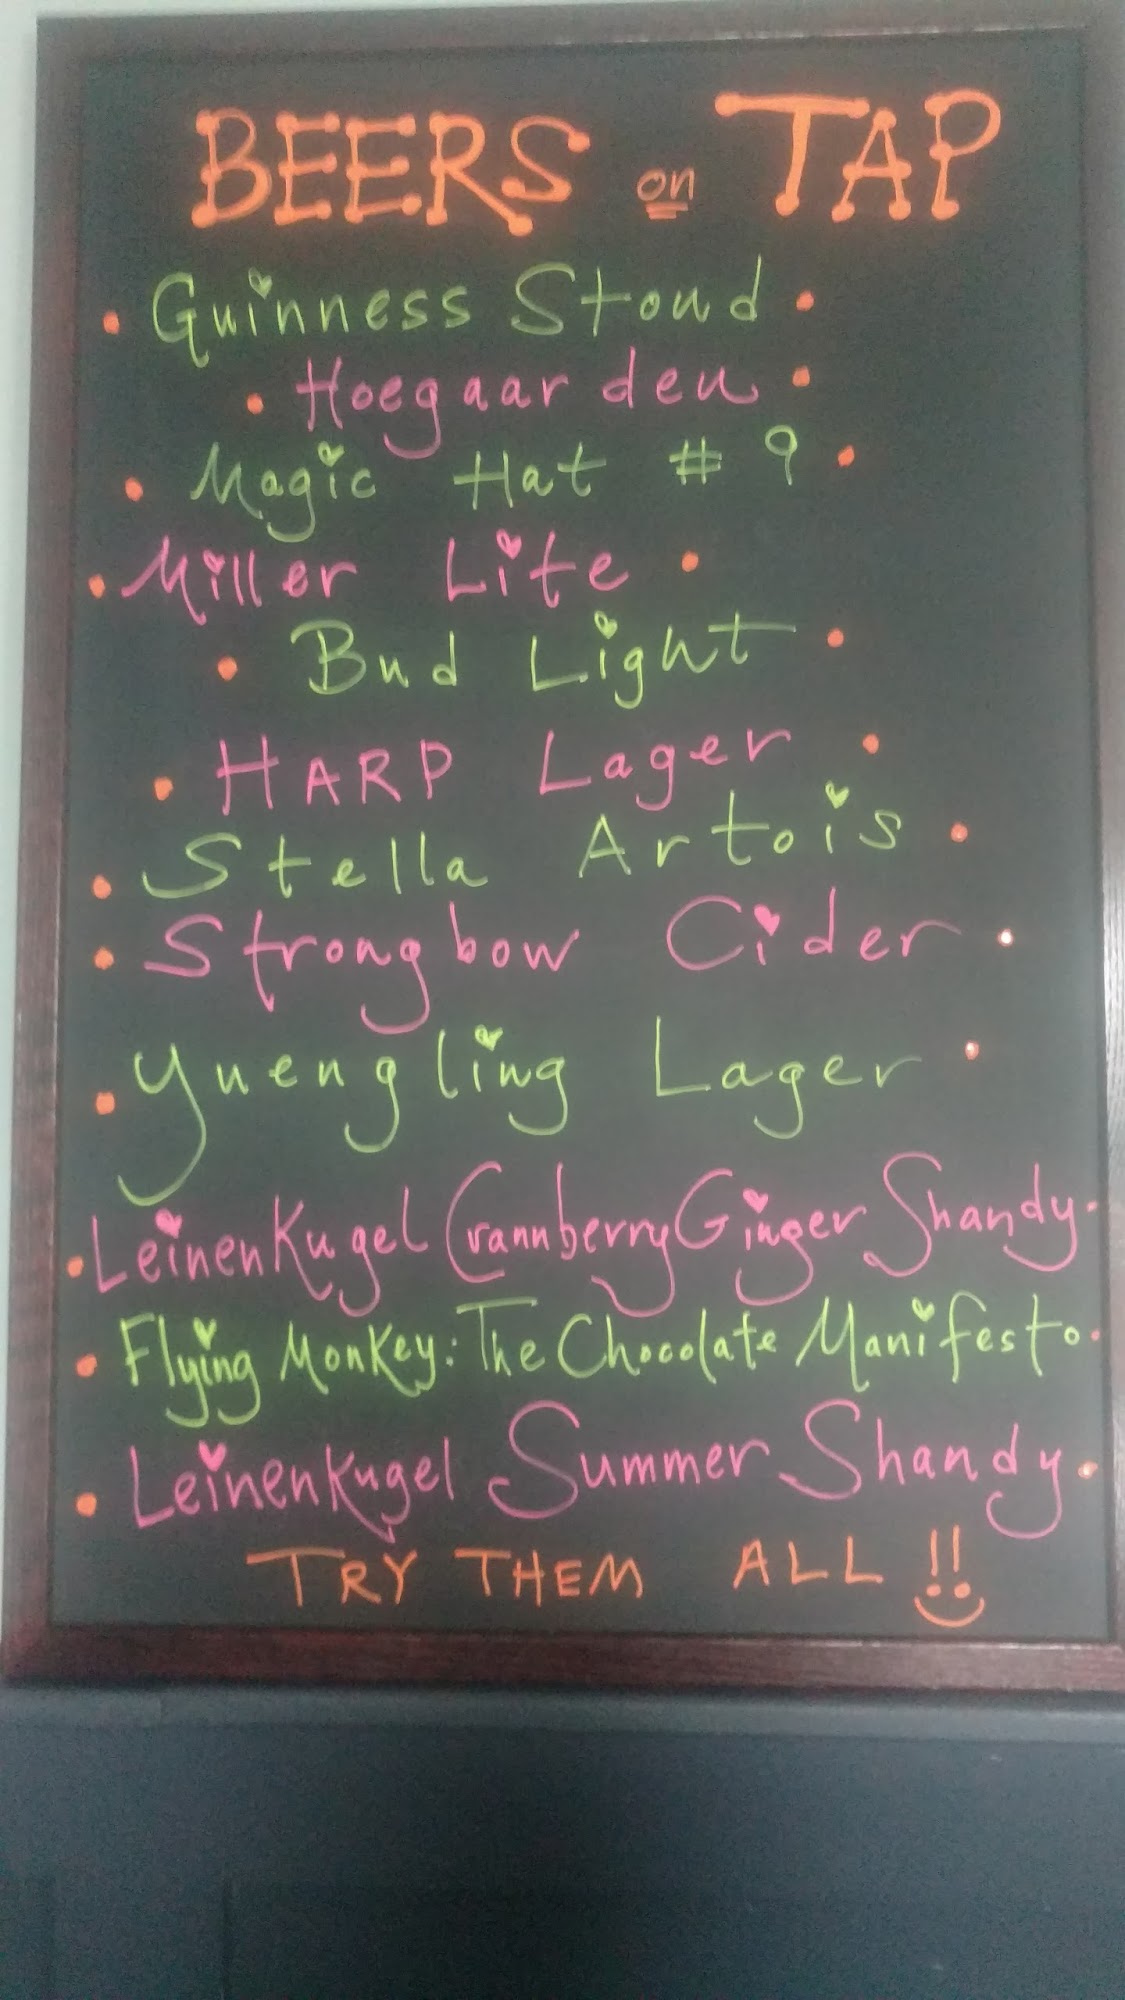 BEERS on TAP
• Guinness Stoud •
• Hoegaarden •
• Magic Hat # 9 •
• Miller Lite •
• Bud Light •
• HARP Lager •
• Stella Artois •
• Strongbow Cider •
• Yuengling Lager •
• LeinenKugel Crannberry Ginger Shandy •
• Flying MonKey: The Chocolate Manifesto •
• LeinenKugel Summer Shandy •
TRY THEM ALL !!